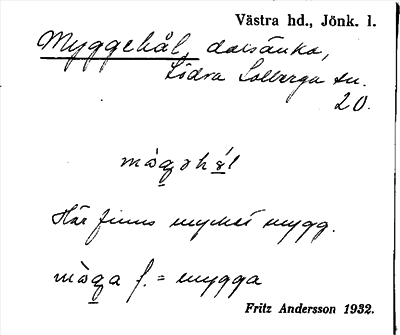 Västra hd., Jönk. l.
Myggehål, dalsänka,
Södra Solberga sn.
20.
màgəhål
Här finns mycket mygg.
màga f. = mygga
Fritz Andersson 1932.